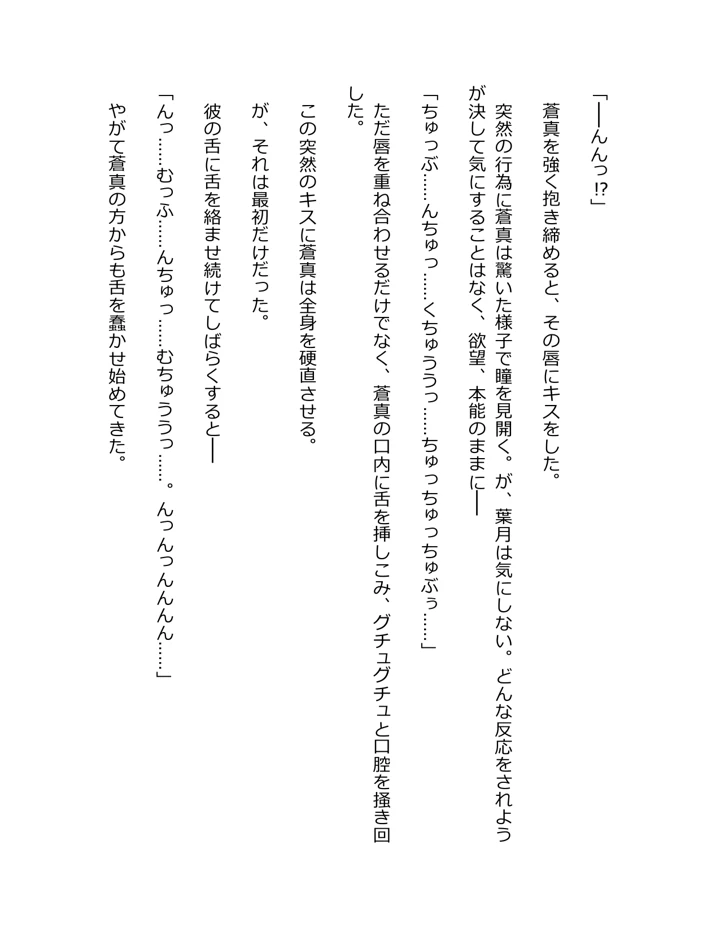 「――んんっ!?」
蒼真を強く抱き締めると、その唇にキスをした。
突然の行為に蒼真は驚いた様子で瞳を見開く。が、葉月は気にしない。どんな反応をされよう
が決して気にすることはなく、欲望、本能のままに――
「ちゅっぶ……んちゅっ……くちゅううっ……ちゅっちゅっちゅぶぅ……」
ただ唇を重ね合わせるだけでなく、蒼真の口内に舌を挿しこみ、グチュグチュと口腔を掻き回
した。
この突然のキスに蒼真は全身を硬直させる。
が、それは最初だけだった。
彼の舌に舌を絡ませ続けてしばらくすると――
「んっ……むっふ……んちゅっ……むちゅううっ……。んっんっんんんん……」
やがて蒼真の方からも舌を蠢かせ始めてきた。